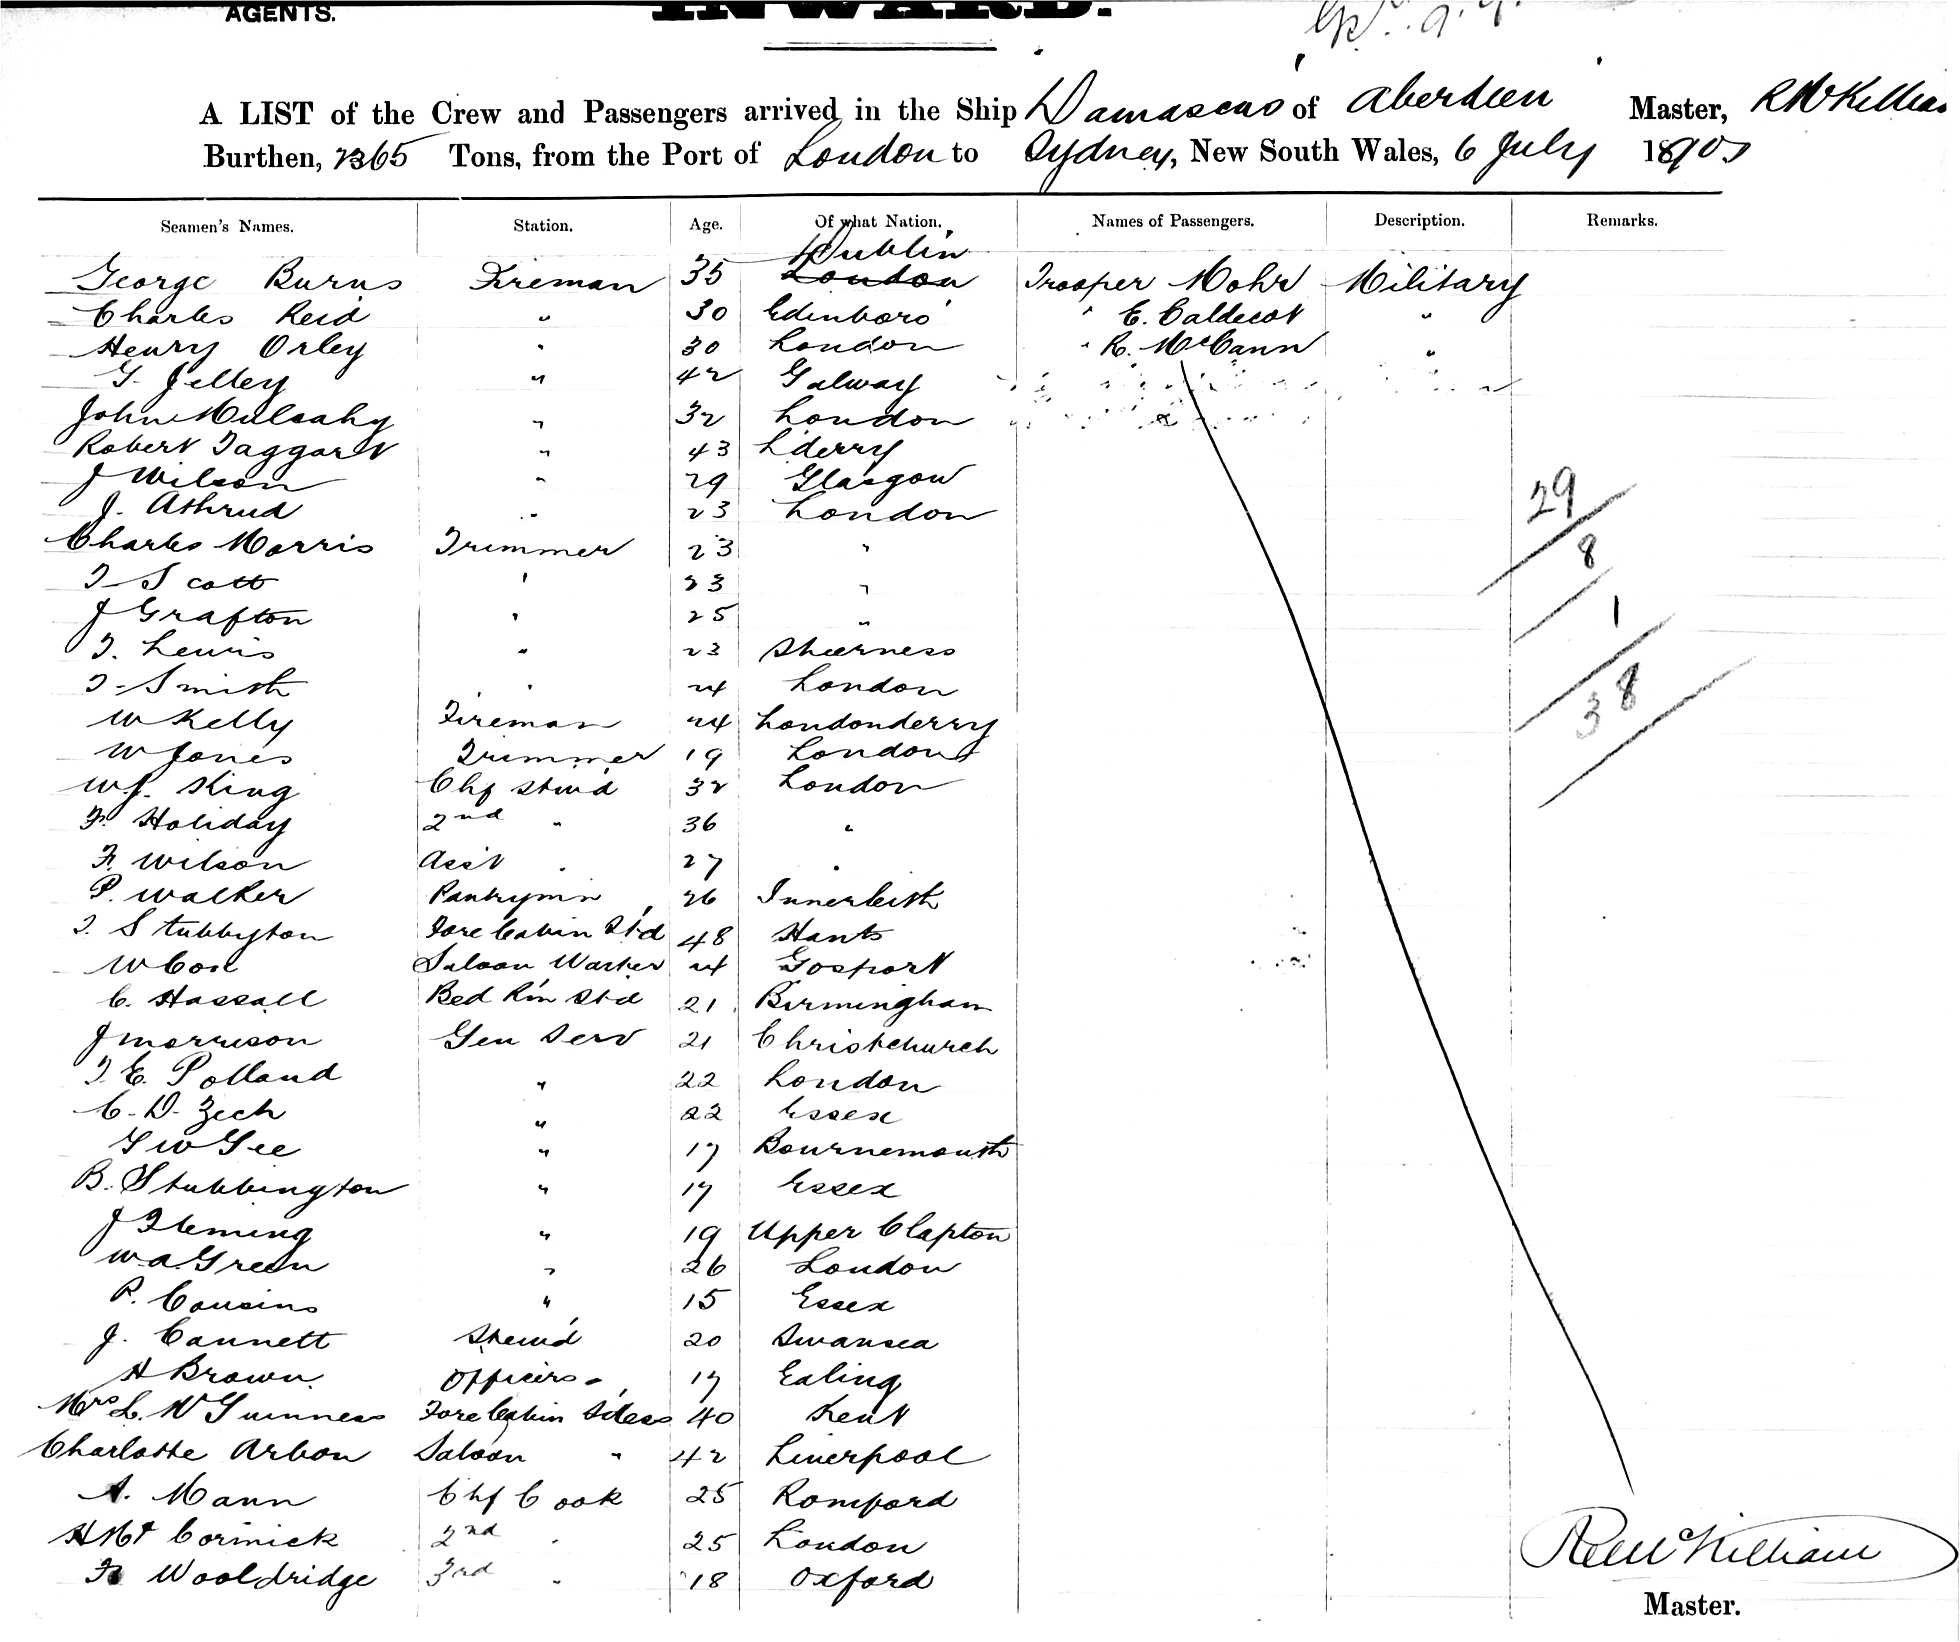 AGENTS.
INWARD.
A LIST of the Crew and Passengers arrived in the Ship Damascus of Aberdeen Master,
Burthen, 2365 Tons, from the Port of London to Sydney, New South Wales, 6 July
Seamen's Names. Station. Age. Of what Nation. Names of Passengers. Description. Remarks.
Dublin
George Burns Fireman 35 London Trooper Mohr Military
Charles Reid " 30 Edinboro " E. Caldecot "
Henry Orley " 30 London " R. McCann "
G. Jelley " 42 Galway
John Mulcahy " 32 London
Robert Taggart " 43 Lderry
J Wilson " 29 Glasgow
J. Athrud " 23 London
29
Charles Morris Trimmer 23 "
8
T Scott " 23 "
J Grafton " 25 "
1
T. Lewis " 23 Sheerness
T. Smith " 24 London
38
W Kelly Fireman 24 Londonderry
W Jones Trimmer 19 London
W.J. King Chf Stew'd 32 London
F. Holiday 2nd " 36 "
F. Wilson Ass't " 27 "
P. Walker Pantrym'n 26 Innerleith
T. Stubbyton Fore Cabin St'd 48 Hants
W Cox Saloon Waiter 24 Gosport
C. Hassall Bed R'm Std 21 Birmingham
J Morrison Gen Serv 21 Christchurch
T. E. Polland " 22 London
C. D. Zech " 22 Essex
G W Gee " 17 Bournemouth
B. Stubbington " 17 Essex
J Fleming " 19 Upper Clapton
W.A. Green " 26 London
P. Cousins " 15 Essex
J. Cannett Stew'd 20 Swansea
H Brown Officers " 17 Ealing
Mrs L. McGuinness Fore Cabin Stdess 40 Kent
Charlotte Arbon Saloon " 42 Liverpool
A. Mann Chf Cook 25 Romford
H McCormick 2nd " 25 London
F Wooldridge 3rd " 18 Oxford
Master.